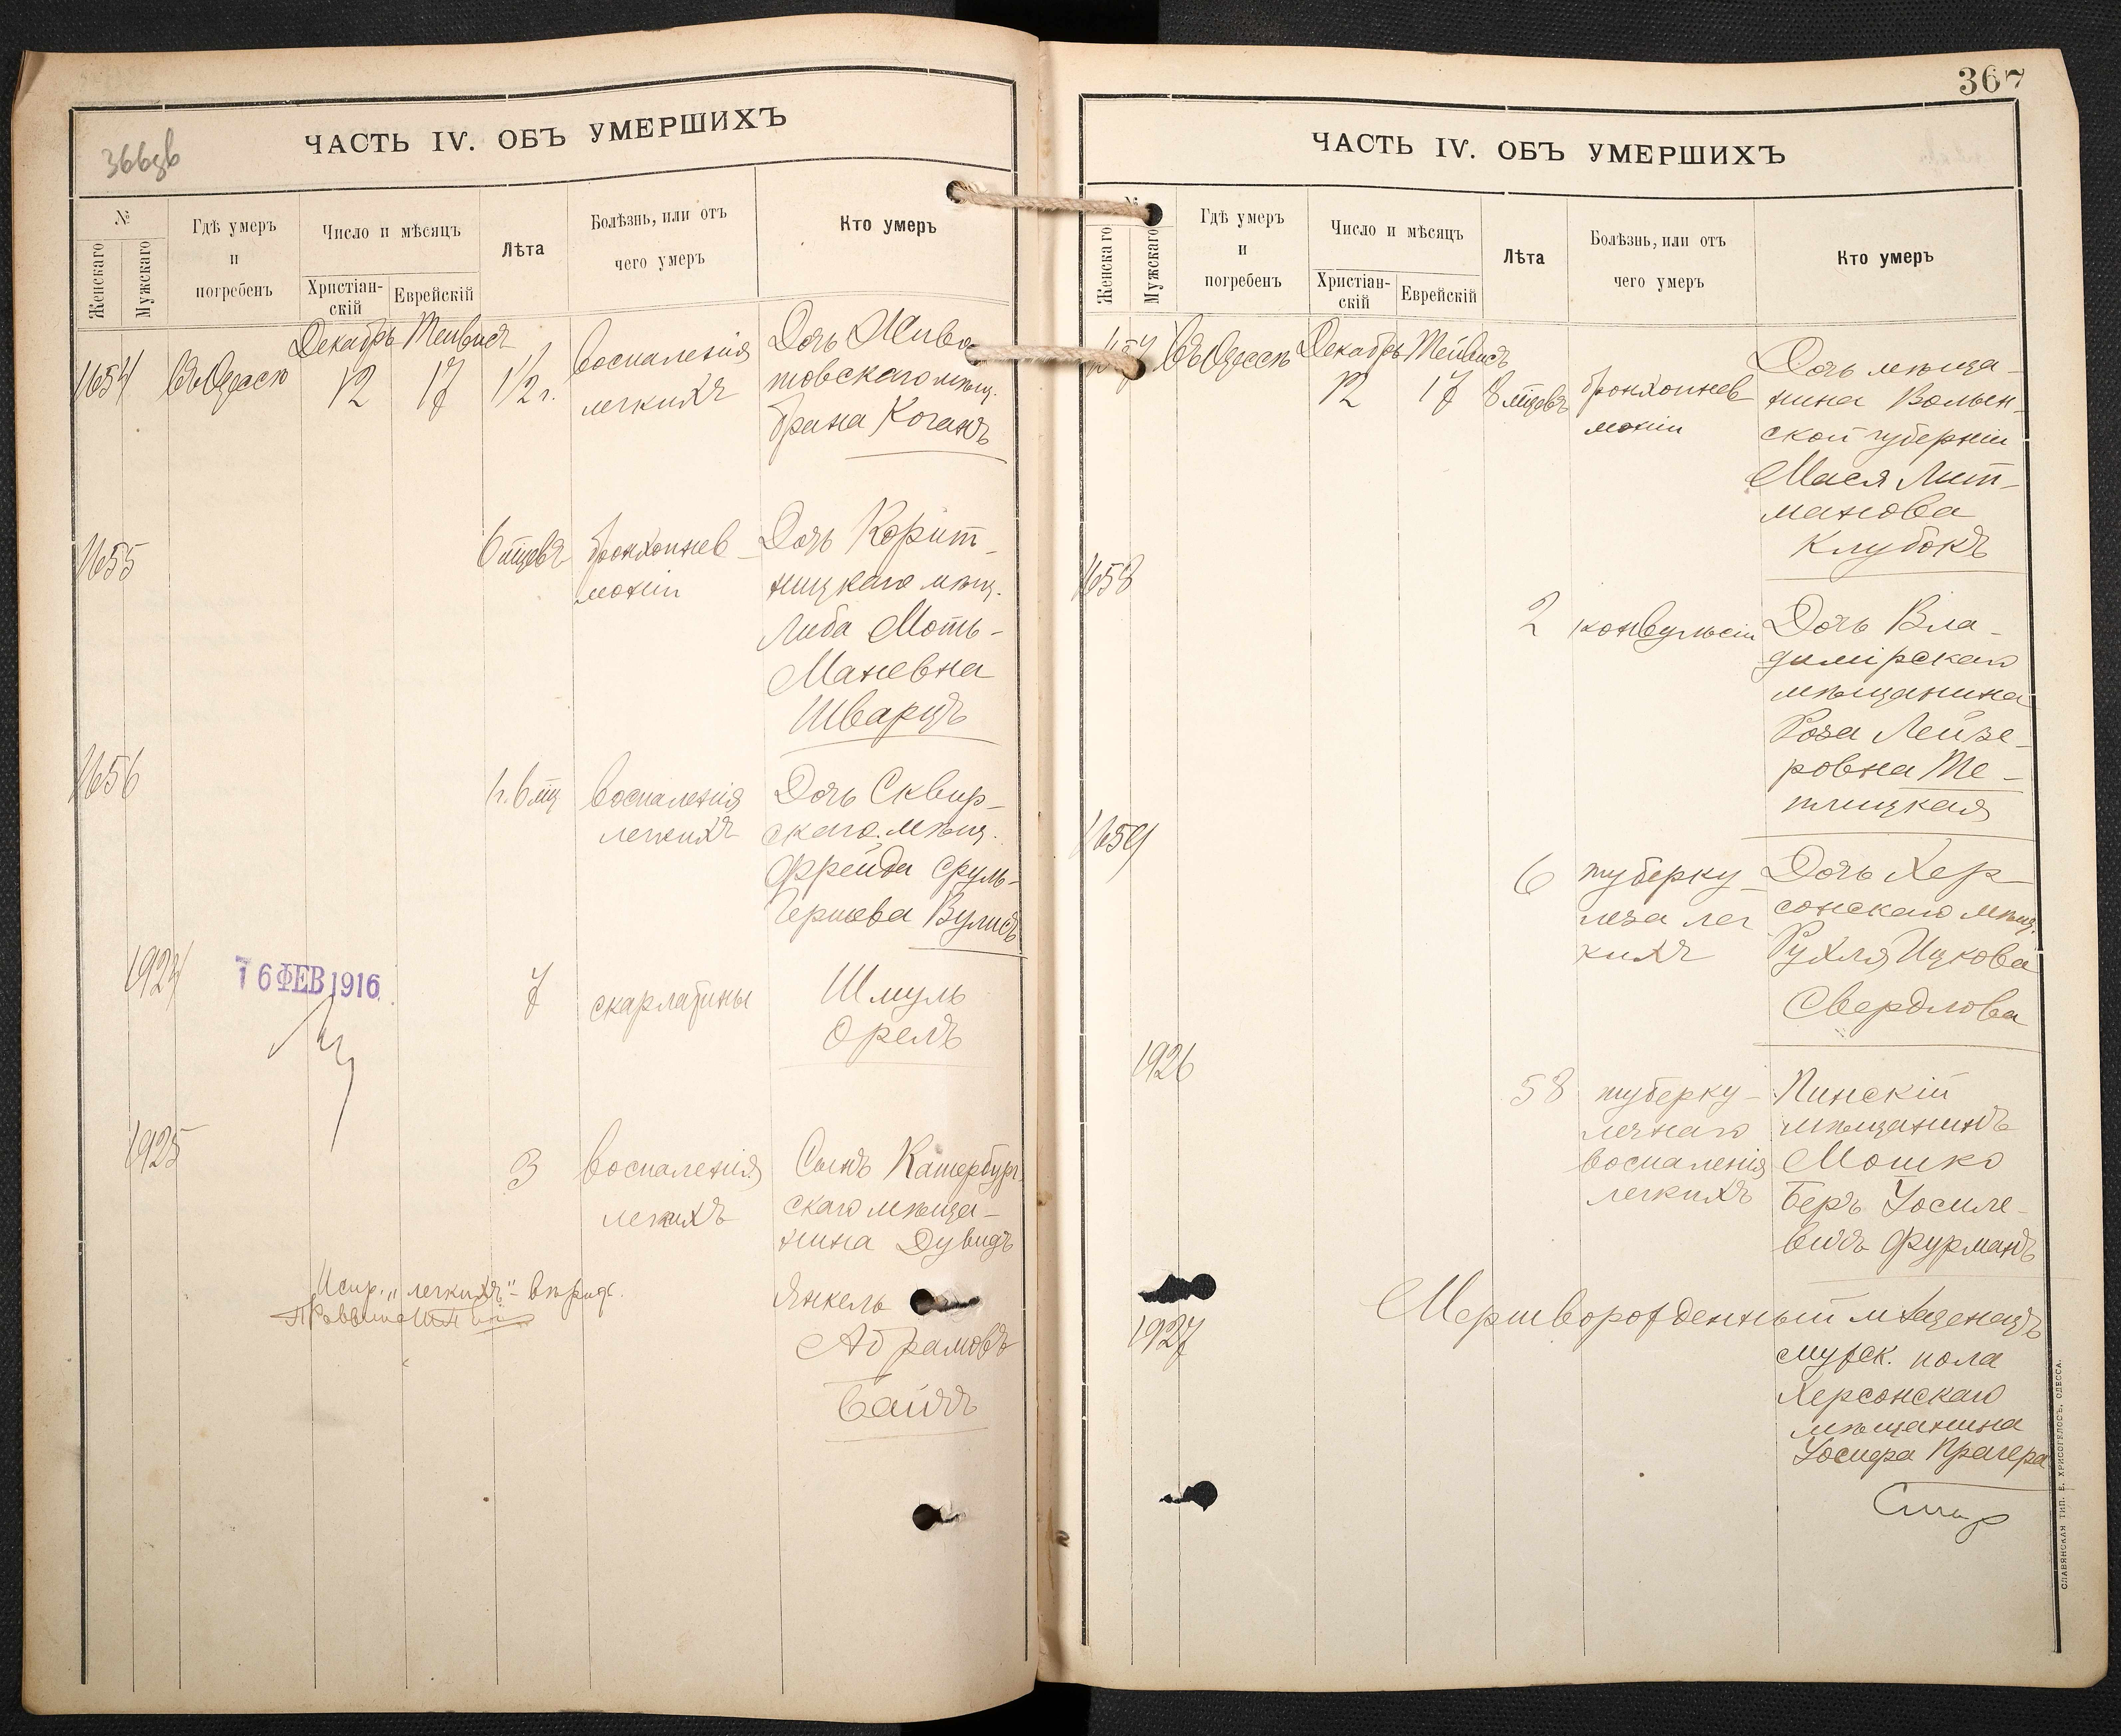 366зв
ЧАСТЬ IV. ОБЪ УМЕРШИХЪ
№
Женскаго
Мужскаго
Гдѣ умеръ
и
погребенъ
Число и мѣсяцъ
Христіан-
скій
Еврейскій
Лѣта
Болѣзнь, или отъ
чего умеръ
Кто умеръ
Декабрь Тейвисъ
1654 Въ Одессѣ 12 17 1 1/2 г.
воспаленія
легкихъ
Дочь Хиво
товскаго мѣщ.
Брана Коганъ
1655
6 мцевъ
бронхопнев-
моніи
Дочь Корит-
ницкаго мѣщ.
Либа Моть-
Маневна
Шварцъ
1656
1 г. 6 мц
воспаленія
легкихъ
Дочь Сквир-
скаго мѣщ.
Фрейда Сруль-
Гершева Вулисъ
1924
16 ФЕВ 1916
7
скарлатины
Шмуль
Орелъ
1925
3
воспаленія
легкихъ
Сынъ Катербург
скаго мѣща-
нина Дувидъ
Янкель
Абрамовъ
Байчъ
Испр. „легкихъ" - вѣрно.
367
ЧАСТЬ IV. ОБЪ УМЕРШИХЪ
№
Женскаго
Мужскаго
Гдѣ умеръ
и
погребенъ
Число и мѣсяцъ
Христіан-
скій
Еврейскій
Лѣта
Болѣзнь, или отъ
чего умеръ
Кто умеръ
Декабрь Тейвисъ
1657 Въ Одессѣ 12 17 8 мцевъ
бронхопнев
моніи
Дочь мѣща-
нина Волын-
ской губерніи
Мася Лит-
манова
Клубокъ
1658
2
конвульсіи
Дочь Вла-
димірскаго
мѣщанина
Роза Лейзе-
ровна Те-
плицкая
1659
6
туберку-
леза лег
кихъ
Дочь Хер-
сонскаго мѣщ.
Рухля Ицкова
Свердлова
1926
58
туберку-
лезнаго
воспаленія
легкихъ
Пинскій
мѣщанинъ
Мошко
Беръ Іосиле-
вичъ Фурманъ
1927
Мертворожденный младенецъ
мужск. пола
Херсонскаго
мѣщанина
Іосифа Прагера
СЛАВЯНСКАЯ ТИП. Е. ХРИСОГЕЛОСЪ, ОДЕССА.